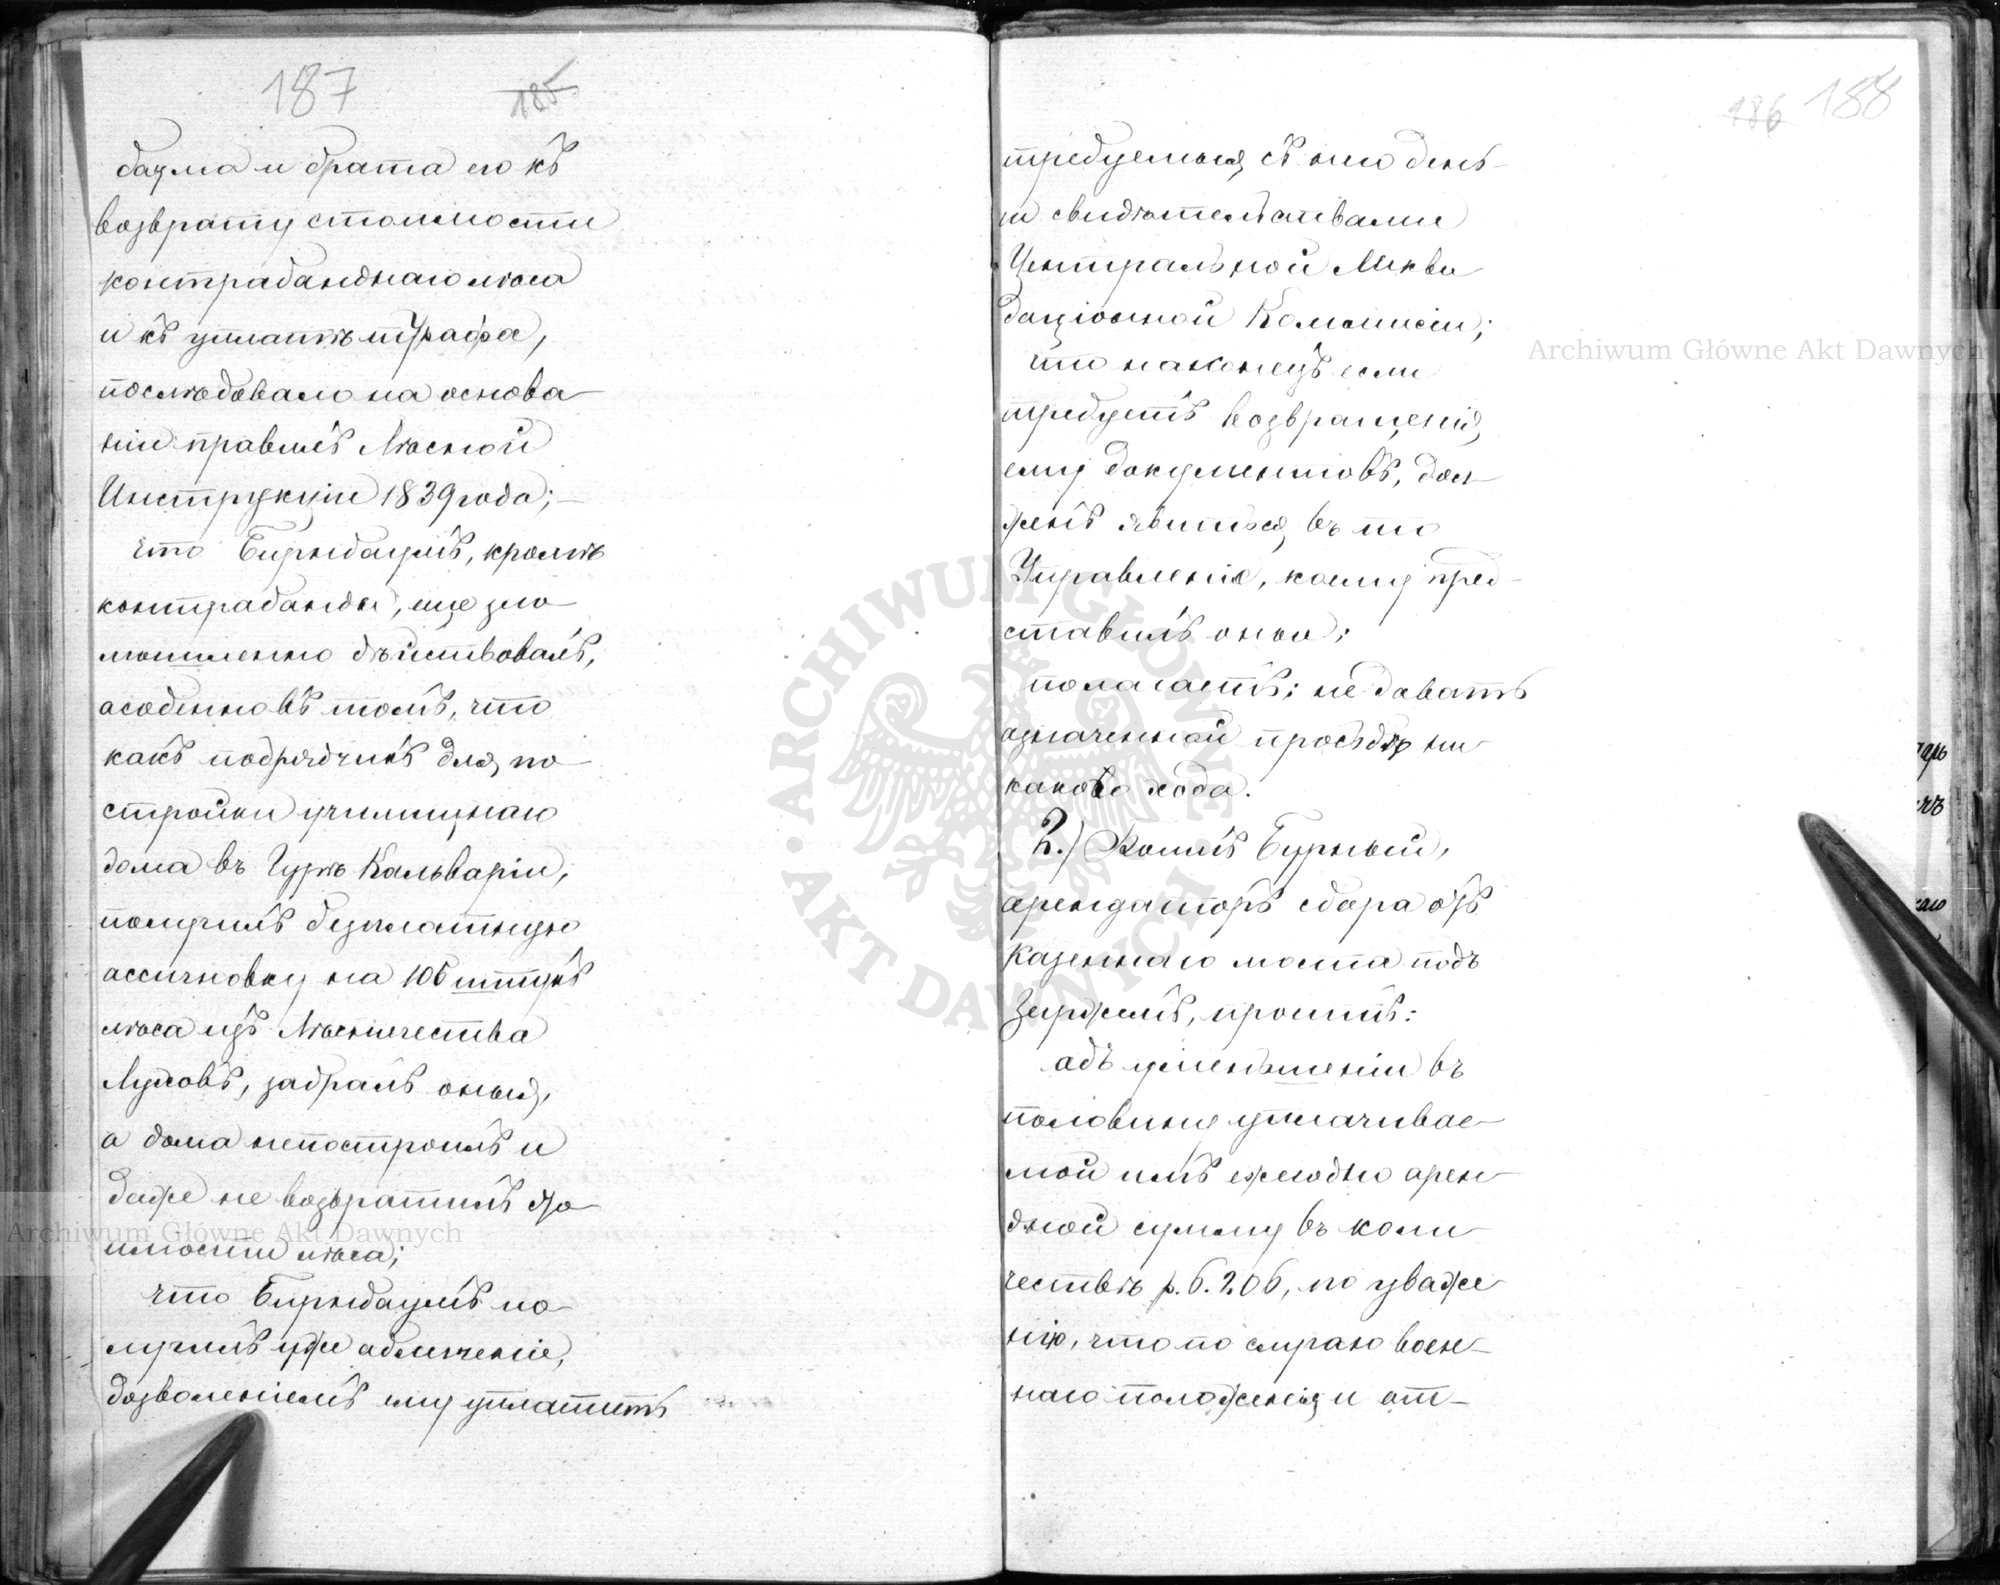 187 185
баума и брата его къ
возврату стоимости
контрабанднаго лѣса
и къ уплатѣ штрафа,
послѣдовало на основа-
ніи правилъ Лѣсной
Инструкціи 1839 года; —
что Бирнбаумъ, кромѣ
контрабанды, еще зло-
мышленно дѣйствовалъ,
особенно въ томъ, что
какъ подрядчикъ для по-
стройки училищнаго
дома въ Гурѣ Кальваріи,
получилъ безплатную
ассигновку на 106 штукъ
лѣса изъ Лѣсничества
Луговъ, забралъ оныя,
а дома непостроилъ и
даже не возвратилъ сто-
имости лѣса;
что Бирнбаумъ по-
лучилъ уже облегченіе,
дозволеніемъ ему уплатить
186 188
требуемыя съ него день-
ги свидѣтельствами
Центральной Ликви
даціонной Коммисіи;
что наконецъ если
требуетъ возвращенія
ему документовъ, дол-
женъ явиться въ то
Управленіе, коему пред-
ставилъ оные;
полагаетъ: не давать
означенной просьбѣ ни
какого хода.
2.) Бурный,
арендаторъ сбора отъ
казеннаго моста подъ
проситъ:
объ уменьшеніи въ
половину уплачивае-
мой имъ ежегодно арен-
дной сумму въ коли-
чествѣ р. 6.206, по уваже-
нію, что по случаю воен-
наго положенія и от-
ARCHIWUM GŁÓWNE AKT DAWNYCH
Archiwum Główne Akt Dawnych
Archiwum Główne Akt Dawnych